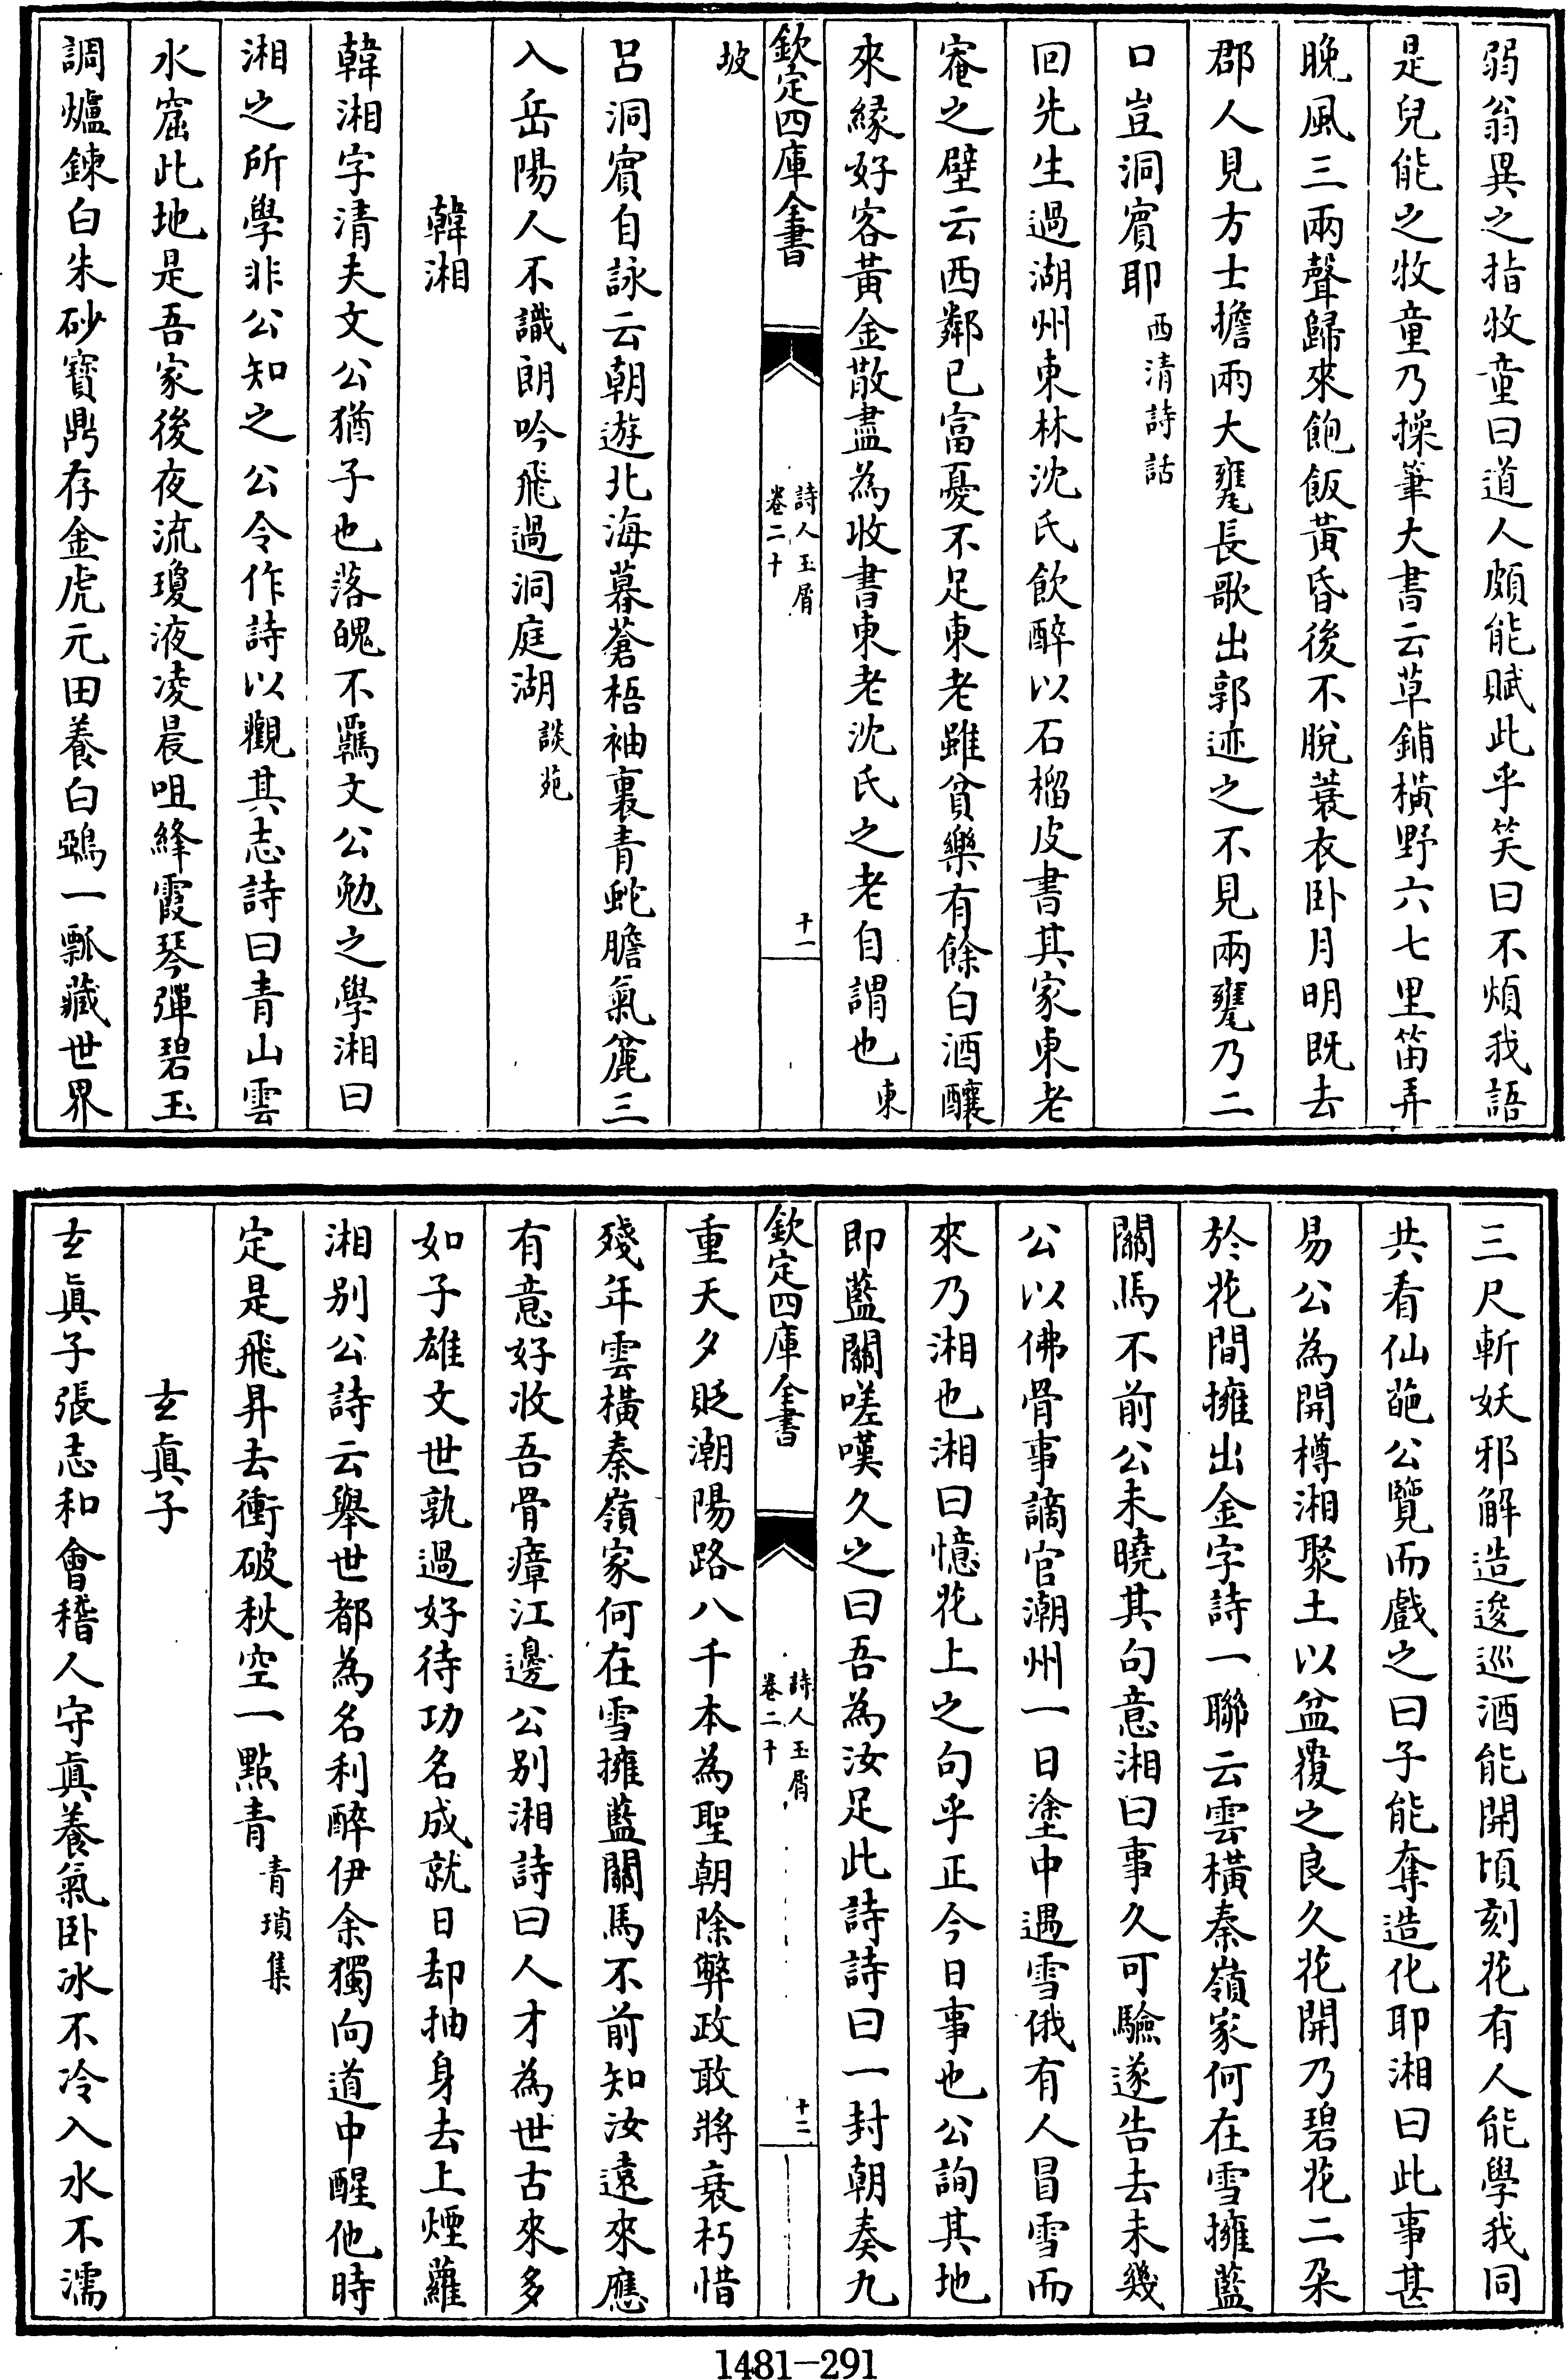 弱翁異之指牧童曰道人頗能賦此乎笑曰不煩我語
是兒能之牧童乃操筆大書云草鋪橫野六七里笛弄
晚風三兩聲歸來飽飯黃昏後不脫蓑衣卧月明既去
郡人見方士擔兩大甕長歌出郭迹之不見兩甕乃二
口豈洞賓耶西清詩話
回先生過湖州東林沈氏飲醉以石榴皮書其家東老
菴之壁云西鄰已富憂不足東老雖貧樂有餘白酒釀
來緣好客黃金散盡為收書東老沈氏之老自謂也東
欽定四庫全書
詩人玉屑
卷二十
十一
坡
呂洞賓自詠云朝遊北海暮蒼梧袖裏青蛇膽氣麄三
入岳陽人不識朗吟飛過洞庭湖談苑
韓湘
韓湘字清夫文公猶子也落魄不羈文公勉之學湘曰
湘之所學非公知之公令作詩以觀其志詩曰青山雲
水窟此地是吾家後夜流瓊液凌晨咀絳霞琴彈碧玉
調爐鍊白朱砂寶鼎存金虎元田養白鵶一瓢藏世界
三尺斬妖邪解造逡巡酒能開頃刻花有人能學我同
共看仙葩公覽而戲之曰子能奪造化耶湘曰此事甚
易公為開樽湘聚土以盆覆之良久花開乃碧花二朶
於花間擁出金字詩一聯云雲橫秦嶺家何在雪擁藍
關馬不前公未曉其句意湘曰事久可驗遂告去未幾
公以佛骨事謫官潮州一日塗中遇雪俄有人冒雪而
來乃湘也湘曰憶花上之句乎正今日事也公詢其地
即藍關嗟嘆久之曰吾為汝足此詩詩曰一封朝奏九
欽定四庫全書
詩人玉屑
卷二十
十二
重天夕貶潮陽路八千本為聖朝除弊政敢將衰朽惜
殘年雲橫秦嶺家何在雪擁藍關馬不前知汝遠來應
有意好收吾骨瘴江邊公别湘詩曰人才為世古來多
如子雄文世孰過好待功名成就日却抽身去上煙蘿
湘别公詩云舉世都為名利醉伊余獨向道中醒他時
定是飛昇去衝破秋空一點青青瑣集
玄眞子
玄眞子張志和會稽人守眞養氣卧冰不冷入水不濡
1481-291